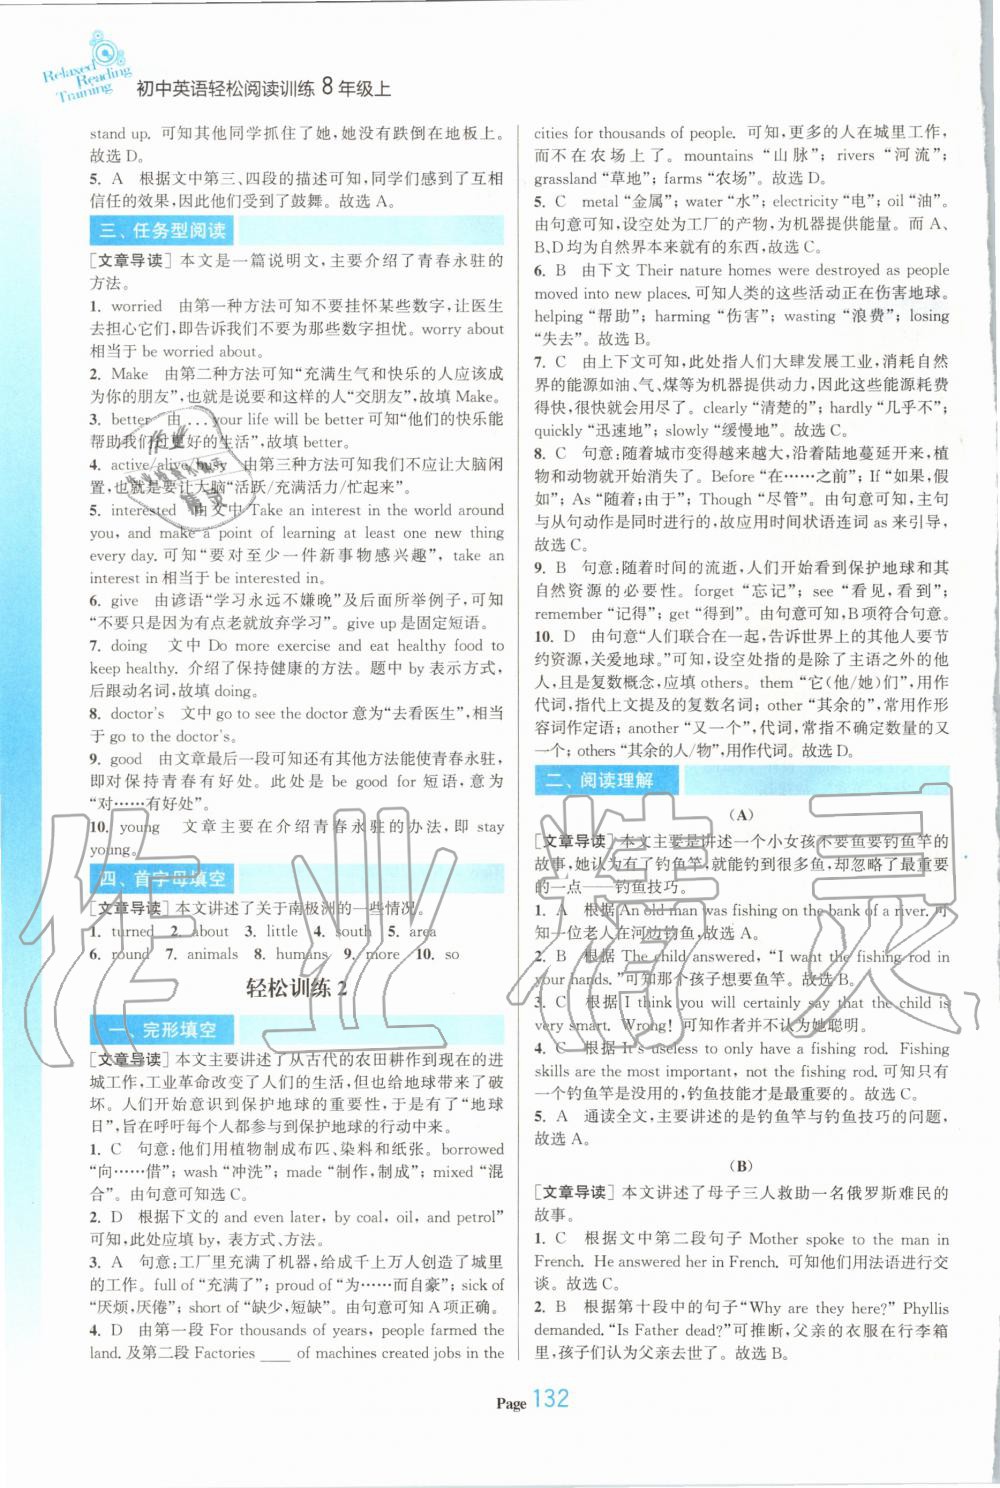 Relaxed
Reading
Training
初中英语轻松阅读训练 8年级上
stand up. 可知其他同学抓住了她,她没有跌倒在地板上。
故选 D。
5. A 根据文中第三、四段的描述可知,同学们感受到了互相
信任的效果,因此他们受到了鼓舞。故选 A。
三、任务型阅读
[文章导读] 本文是一篇说明文,主要介绍了青春永驻的
方法。
1. worried 由第一种方法可知不要挂怀某些数字,让医生
去担心它们,即告诉我们不要为那些数字担忧。worry about
相当于 be worried about。
2. Make 由第二种方法可知“充满生气和快乐的人应该成
为你的朋友”,也就是说要和这样的人“交朋友”,故填 Make。
3. better 由 ...your life will be better 可知“他们的快乐能
帮助我们过更好的生活”,故填 better。
4. active/alive/busy 由第三种方法可知我们不应让大脑闲
置,也就是要让大脑“活跃/充满活力/忙起来”。
5. interested 由文中 Take an interest in the world around
you, and make a point of learning at least one new thing
every day. 可知“要对至少一件新事物感兴趣”, take an
interest in 相当于 be interested in。
6. give 由谚语“学习永远不嫌晚”及后面所举例子,可知
“不要只是因为有点老就放弃学习”。give up 是固定短语。
7. doing 文中 Do more exercise and eat healthy food to
keep healthy. 介绍了保持健康的方法。题中 by 表示方式,
后跟动名词,故填 doing。
8. doctor's 文中 go to see the doctor 意为“去看医生”,相当
于 go to the doctor's。
9. good 由文章最后一段可知还有其他方法能使青春永驻,
即对保持青春有好处。此处是 be good for 短语,意为
“对……有好处”。
10. young 文章主要在介绍青春永驻的办法,即 stay
young。
四、首字母填空
[文章导读] 本文讲述了关于南极洲的一些情况。
1. turned 2. about 3. little 4. south 5. area
6. round 7. animals 8. humans 9. more 10. so
轻松训练 2
一、完形填空
[文章导读] 本文主要讲述了从古代的农田耕作到现在的进
城工作,工业革命改变了人们的生活,但也给地球带来了破
坏。人们开始意识到保护地球的重要性,于是有了“地球
日”,旨在呼吁每个人都参与到保护地球的行动中来。
1. C 句意:他们用植物制成布匹、染料和纸张。borrowed
“向……借”; wash “冲洗”; made “制作,制成”; mixed “混
合”。由句意可知选 C。
2. D 根据下文的 and even later, by coal, oil, and petrol”
可知,此处应填 by,表方式、方法。
3. A 句意:工厂里充满了机器,给成千上万人创造了城里
的工作。full of “充满了”; proud of “为……而自豪”; sick of
“厌烦,厌倦”; short of “缺少,短缺”。由句意可知 A 项正确。
4. D 由第一段 For thousands of years, people farmed the
land. 及第二段 Factories ____ of machines created jobs in the
cities for thousands of people. 可知,更多的人在城里工作,
而不在农场上了。mountains “山脉”; rivers “河流”;
grassland “草地”; farms “农场”。故选 D。
5. C metal “金属”; water “水”; electricity “电”; oil “油”。
由句意可知,设空处为工厂的产物,为机器提供能量。而 A、
B、D均为自然界本来就有的东西,故选 C。
6. B 由下文 Their nature homes were destroyed as people
moved into new places. 可知人类的这些活动正在伤害地球。
helping “帮助”; harming “伤害”; wasting “浪费”; losing
“失去”。故选 B。
7. C 由上下文可知,此处指人们大肆发展工业,消耗自然
界的能源如油、气、煤等为机器提供动力,因此这些能源耗费
得快,很快就会用完。clearly “清楚的”; hardly “几乎不”;
quickly “迅速地”; slowly “缓慢地”。故选 C。
8. C 句意:随着城市变得越来越大,沿着陆地蔓延开来,植
物和动物就开始消失了。Before “在……之前”; If “如果,假
如”; As “随着;由于”; Though “尽管”。由句意可知,主句
与从句动作是同时进行的,故应用时间状语连词 as 来引导,
故选 C。
9. B 句意:随着时间的流逝,人们开始看到保护地球和其
自然资源的必要性。forget “忘记”; see “看见,看到”;
remember “记得”; get “得到”。由句意可知,B项符合句意。
10. D 由句意“人们联合在一起,告诉世界上的其他人要节
约资源,关爱地球。”可知,设空处指的是除了主语之外的他
人,且是复数概念,应填 others。them “它(他/她)们”,用作
代词,指代上文提及的复数名词; other “其余的”,常用作形
容词作定语; another “又一个”,代词,指代不确定数量的又
一个; others “其余的人/物”,用作代词。故选 D。
二、阅读理解
(A)
[文章导读] 本文主要是讲述一个小女孩不要鱼要钓鱼竿的
故事,她认为有了钓鱼竿,就能钓到很多鱼,却忽略了最重要
的一点——钓鱼技巧。
1. A 根据 An old man was fishing on the bank of a river. 可
知一位老人在河边钓鱼,故选 A。
2. B 根据 The child answered, “I want the fishing rod in
your hands.”可知那个孩子想要鱼竿。故选 B。
3. C 根据 I think you will certainly say that the child is
very smart. Wrong! 可知作者并不认为她聪明。故选 C。
4. C 根据 It's useless to only have a fishing rod. Fishing
skills are the most important, not the fishing rod. 可知只有
一个钓鱼竿是没用的,钓鱼技能才是最重要的。故选 C。
5. A 通读全文,主要讲述的是钓鱼竿与钓鱼技巧的问题,
故选 A。
(B)
[文章导读] 本文讲述了母子三人救助一名俄罗斯难民的
故事。
1. C 根据文中第二段句子 Mother spoke to the man in
French. He answered her in French. 可知他们用法语进行交
谈。故选 C。
2. B 根据第十段中的句子“Why are they here?” Phyllis
demanded. “Is Father dead?”可推断,父亲的衣服在行李箱
里,孩子们认为父亲去世了。故选 B。
Page 132
作业精灵